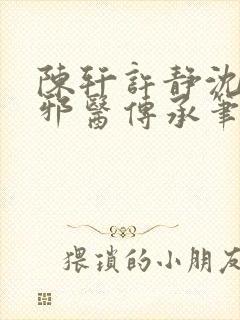 陳軒許靜沈
邪醫傳承筆
猥瑣的小朋友